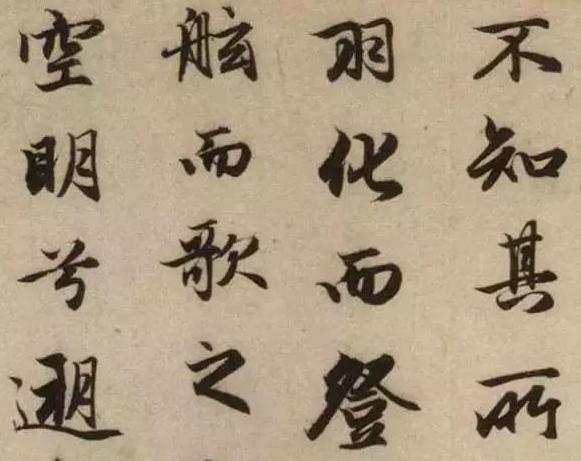 不知其所
羽化而登
舷而歌之
空明兮遡